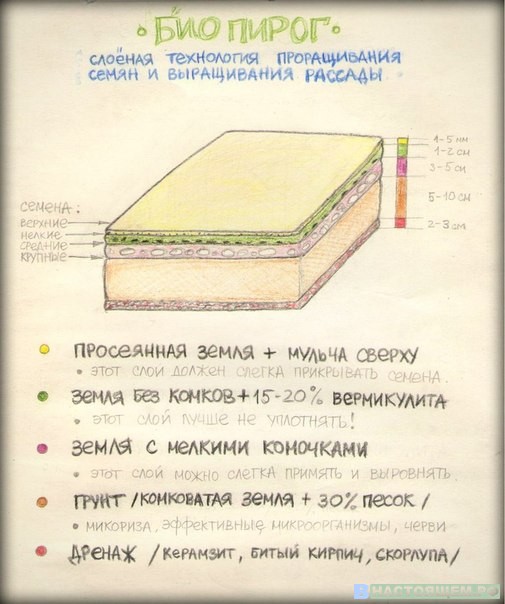 • БИО ПИРОГ •
СЛОЁНАЯ ТЕХНОЛОГИЯ ПРОРАЩИВАНИЯ
СЕМЯН И ВЫРАЩИВАНИЯ РАССАДЫ
4-5 мм
1-2 см
3-5 см
5-10 см
2-3 см
СЕМЕНА:
ВЕРХНИЕ
МЕЛКИЕ
СРЕДНИЕ
КРУПНЫЕ
ПРОСЕЯННАЯ ЗЕМЛЯ + МУЛЬЧА СВЕРХУ
• ЭТОТ СЛОЙ ДОЛЖЕН СЛЕГКА ПРИКРЫВАТЬ СЕМЕНА.
ЗЕМЛЯ БЕЗ КОМКОВ + 15-20% ВЕРМИКУЛИТА
• ЭТОТ СЛОЙ ЛУЧШЕ НЕ УПЛОТНЯТЬ!
ЗЕМЛЯ С МЕЛКИМИ КОМОЧКАМИ
• ЭТОТ СЛОЙ МОЖНО СЛЕГКА ПРИМЯТЬ И ВЫРОВНЯТЬ
ГРУНТ /КОМКОВАТАЯ ЗЕМЛЯ + 30% ПЕСОК/
• МИКОРИЗА, ЭФФЕКТИВНЫЕ МИКРООРГАНИЗМЫ, ЧЕРВИ
ДРЕНАЖ /КЕРАМЗИТ, БИТЫЙ КИРПИЧ, СКОРЛУПА/
ВНАСТОЯЩЕМ.РФ